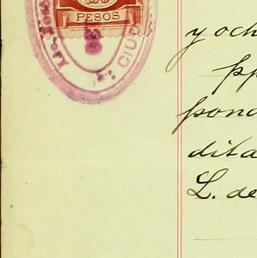 PESOS
CIUD
y och
pp
pond
dita
L. de